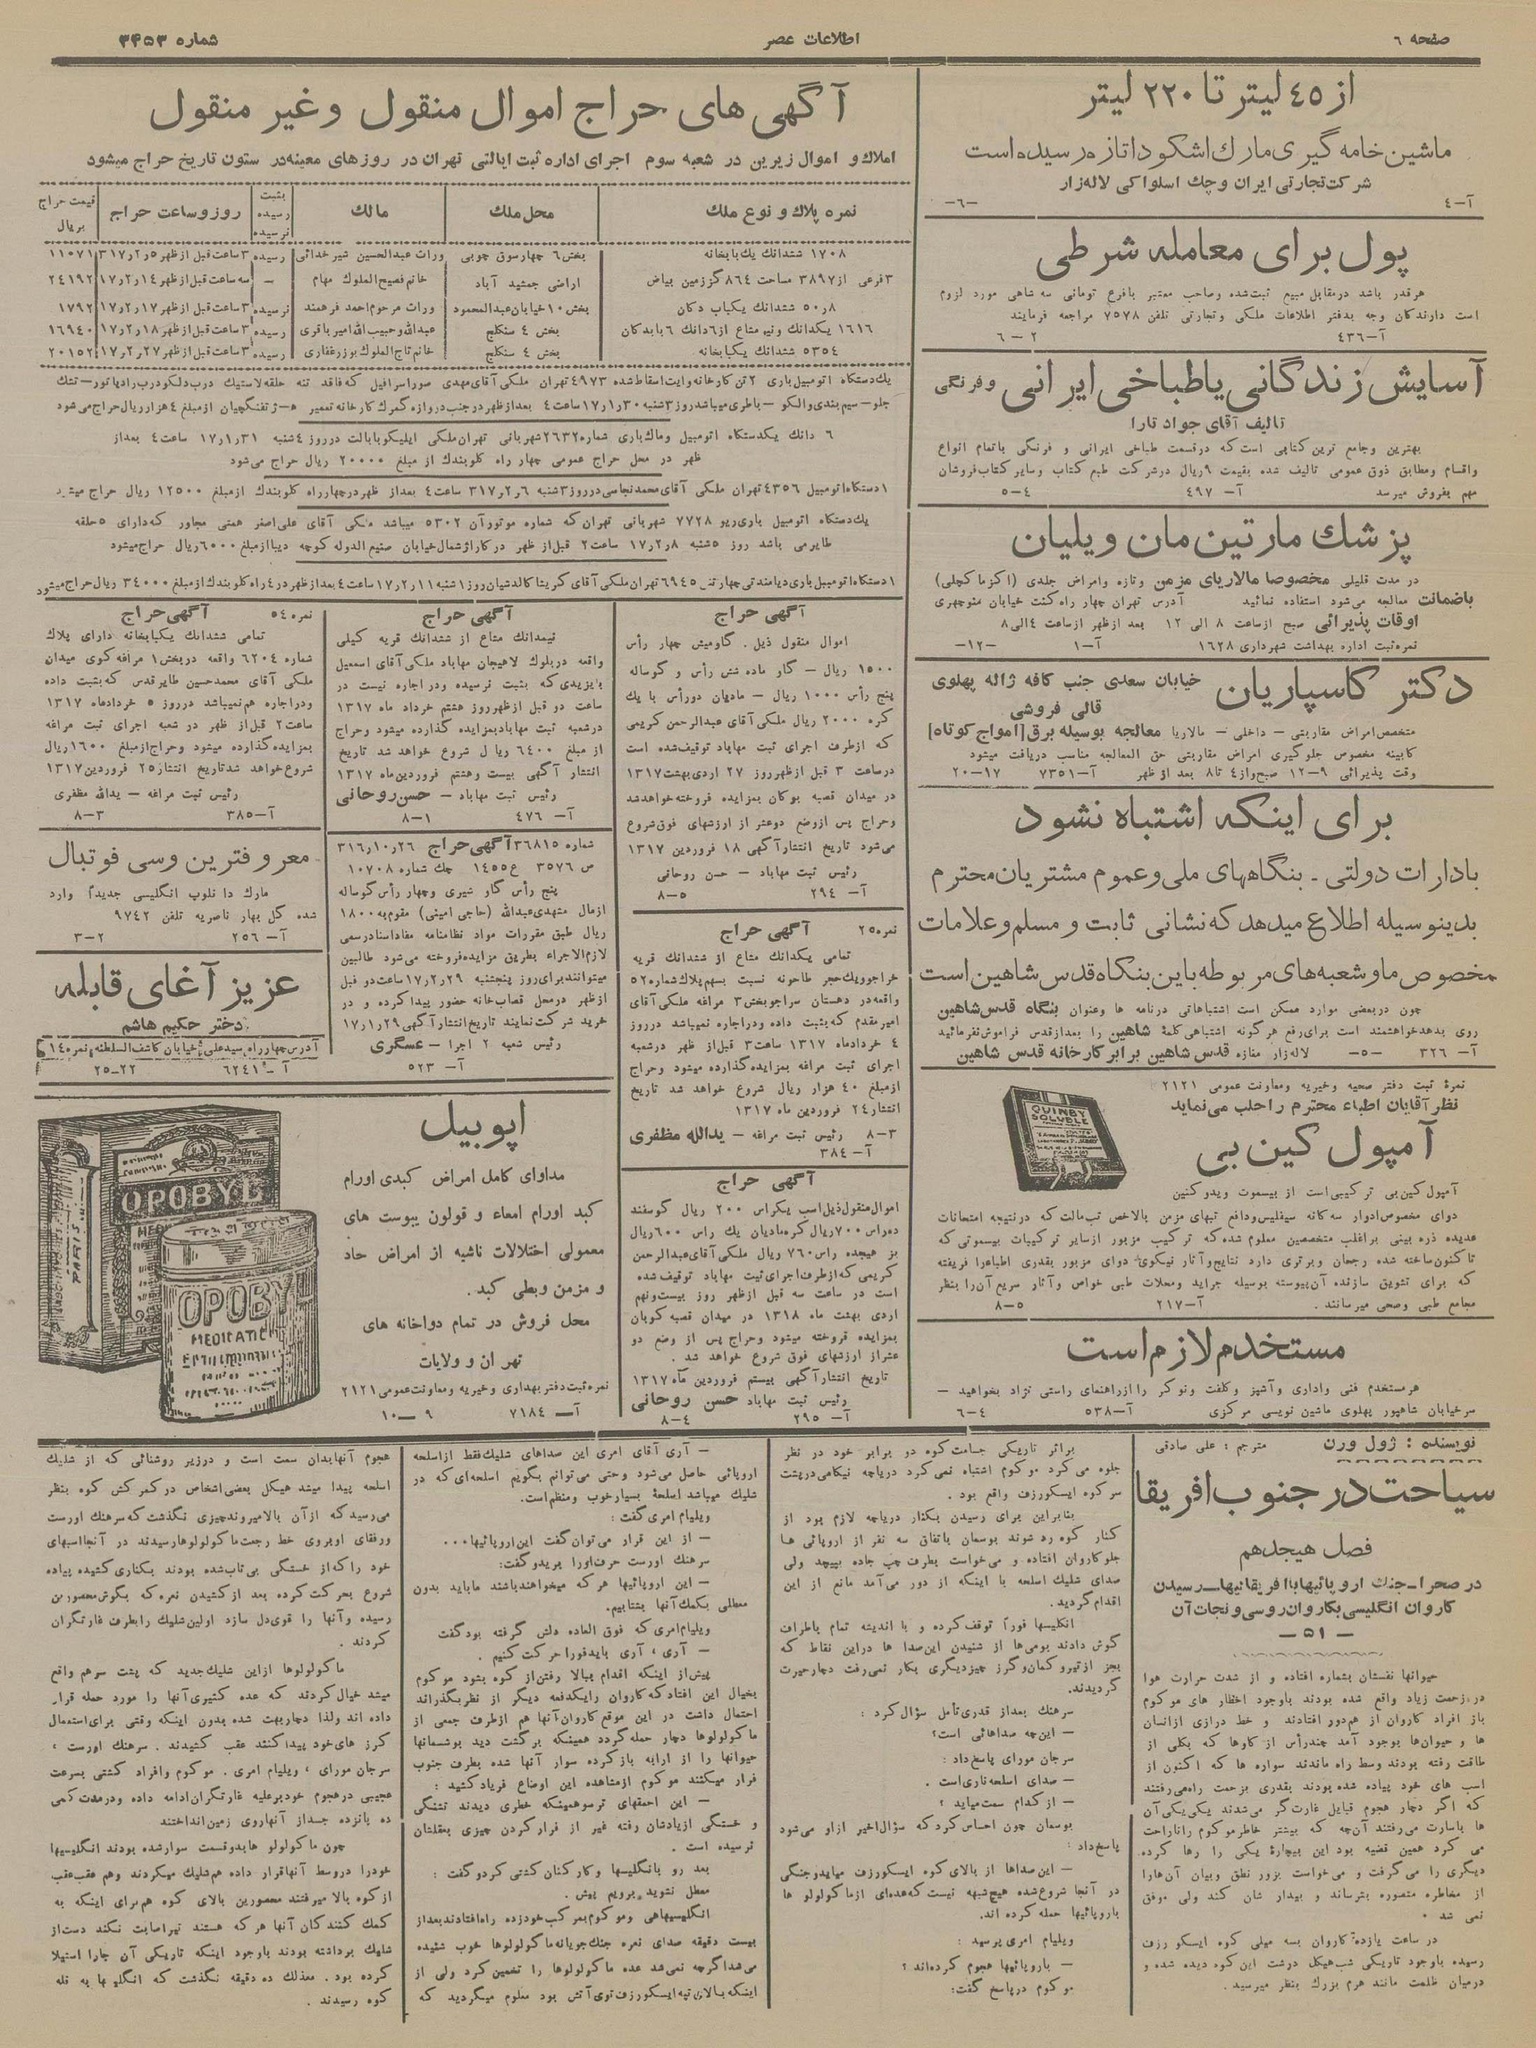 صفحه ٦
اطلاعات عصر
شماره ۳۴۵۳
از ٤٥ لیتر تا ۲۲۰ لیتر
ماشین خامه گیری مارك اشكودا تازه رسیده است
شرکت تجارتی ایران و چك اسلواکی لاله زار
آ-٤
-٦-
پول برای معامله شرطی
هرقدر باشد در مقابل مبیع ثبت شده و صاحب معتبر با فرع تومانی سه شاهی مورد لزوم
است دارندگان وجه بدفتر اطلاعات ملکی و تجارتی تلفن ۷٥۷۸ مراجعه فرمایند
آ-٤٣٦
۲-٦
آسایش زندگانی یا طباخی ایرانی و فرنگی
تالیف آقای جواد تارا
بهترین و جامع ترین کتابی است که در قسمت طباخی ایرانی و فرنگی با تمام انواع
و اقسام و مطابق ذوق عمومی تالیف شده بقیمت ۹ ریال در شرکت طبع کتاب و سایر کتاب فروشان
مهم بفروش میرسد
آ- ٤٩٧
٤-٥
پزشك مارتین مان ویلیان
در مدت قلیلی مخصوصا مالاریای مزمن و تازه و امراض جلدی (اکزما کچلی)
باضمانت معالجه می شود استفاده نمائید آدرس تهران چهار راه کنت خیابان منوچهری
اوقات پذیرائی صبح از ساعت ۸ الی ۱۲ بعد از ظهر از ساعت ٤ الی ۸
نمره ثبت اداره بهداشت شهرداری ۱٦۲۸
آ-۱
-۱۲-
دکتر گاسپاریان خیابان سعدی جنب کافه ژاله پهلوی
قالی فروشی
متخصص امراض مقاربتی - داخلی - مالاریا معالجه بوسیله برق [امواج کوتاه]
کابینه مخصوص جلوگیری امراض مقاربتی حق المعالجه مناسب دریافت میشود
وقت پذیرائی ۹-۱۲ صبح و از ٤ تا ۸ بعد از ظهر
آ-۷۳٥۱
۱۷-۲۰
برای اینکه اشتباه نشود
بادارات دولتی - بنگاههای ملی و عموم مشتریان محترم
بدینوسیله اطلاع میدهد که نشانی ثابت و مسلم و علامات
مخصوص ما و شعبه های مربوطه باین بنگاه قدس شاهین است
چون در بعضی موارد ممکن است اشتباهاتی در نامه ها و عنوان بنگاه قدس شاهین
روی بدهد خواهشمند است برای رفع هر گونه اشتباهی کلمهٔ شاهین را بعد از قدس فراموش نفرمائید
لاله زار مغازه قدس شاهین برابر کارخانه قدس شاهین
آ- ۳۲٦
-٥-
نمرهٔ ثبت دفتر صحیه و خیریه و معاونت عمومی ۲۱۲۱
نظر آقایان اطباء محترم را جلب می نماید
آمپول کین بی
QUINBY
SOLUBLE
آمپول کین بی ترکیبی است از بیسموت و یدو کنین
دوای مخصوص ادوار سه گانه سیفلیس و دافع تبهای مزمن بالاخص تب مالت که در نتیجه امتحانات
عدیده ذره بینی بر اغلب متخصصین معلوم شده که ترکیب مزبور از سایر ترکیبات بیسموتی که
تاکنون ساخته شده رجحان و برتری دارد نتایج و آثار نیکوی دوای مزبور بقدری اطباء را فریفته
که برای تشویق سازنده آن پیوسته بوسیله جراید و مجلات طبی خواص و آثار سریع آن را بنظر
مجامع طبی و صحی میرسانند .
آ-۲۱۷
٥-۸
مستخدم لازم است
هر مستخدم فنی و اداری و آشپز و کلفت و نوکر را از راهنمای راستی نژاد بخواهید -
سر خیابان شاهپور پهلوی ماشین نویسی مرکزی
آ-٥۳۸
٤-٦
آگهی های حراج اموال منقول و غیر منقول
املاك و اموال زیرین در شعبه سوم اجرای اداره ثبت ایالتی تهران در روزهای معینه در ستون تاریخ حراج میشود
نمره پلاك و نوع ملك
محل ملك
مالك
بثبت رسیده نرسیده
روز و ساعت حراج
قیمت حراج بریال
۱۷۰۸ ششدانك یك بابخانه
بخش ٦ چهارسوق چوبی
وراث عبدالحسین شیر خدائی
رسیده
۳ ساعت قبل از ظهر ٥ر۲ر۳۱۷
۱۱۰۷۱
۳ فرعی از ۳۸۹۷ مساحت ۸٦٤ گز زمین بیاض
اراضی جمشید آباد
خانم فصیح الملوك مهام
-
سه ساعت قبل از ظهر ۱٤ر۲ر۱۷
۲٤۱۹۲
۸ر٥۰ ششدانك یكباب دكان
بخش ۱۰ خیابان عبدالمحمود
وراث مرحوم احمد فرهمند
نرسیده
۳ ساعت قبل از ظهر ۱۷ر۲ر۱۷
۱۷۹۲
۱٦۱٦ یکدانك و نیم مشاع از ٦ دانك ٦ بابدكان
بخش ٤ سنگلج
عبدالله و حبیب الله امیر باقری
رسیده
۳ ساعت قبل از ظهر ۱۸ر۲ر۱۷
۱٦۹٤۰
٥۳٥٤ ششدانك یكبابخانه
بخش ٤ سنگلج
خانم تاج الملوك بوزرغفاری
رسیده
۳ ساعت قبل از ظهر ۲۷ر۲ر۱۷
۲۰۱٥۲
یك دستگاه اتومبیل باری ۲ تن کارخانه وایت اسقاط شده ٤۹۷۳ تهران ملکی آقای مهدی سور اسرافیل که فاقد تنه حلقه لاستیك درب دلکو درب رادیاتور - تشك
جلو - سیم بندی و الکو - باطری میباشد روز ۳ شنبه ۳۰ر۱ر۱۷ ساعت ٤ بعد از ظهر در جنب دروازه گمرك کارخانه تعمیر ه-ژ تفنگچیان از مبلغ ٤ هزار ریال حراج می شود
٦ دانك یكدستگاه اتومبیل و ماك باری شماره ۲٦۳۲ شهربانی تهران ملکی ایلیکو بابالت در روز ٤ شنبه ۳۱ر۱ر۱۷ ساعت ٤ بعداز
ظهر در محل حراج عمومی چهار راه کلوبندك از مبلغ ۲۰۰۰۰ ریال حراج می شود
۱ دستگاه اتومبیل ٤۳٥٦ تهران ملکی آقای محمد نجاسی در روز ۳ شنبه ٦ر۲ر۳۱۷ ساعت ٤ بعداز ظهر در چهارراه کلوبندك از مبلغ ۱۲٥۰۰ ریال حراج میشد
یك دستگاه اتومبیل باری ریو ۷۷۲۸ شهربانی تهران که شماره موتور آن ٥۳۰۲ میباشد ملکی آقای علی اصغر همتی مجاور که دارای ٥ حلقه
طایر می باشد روز ٥ شنبه ۸ر۲ر۱۷ ساعت ۲ قبل از ظهر در گاراژ شمال خیابان صنیع الدوله کوچه دیبا از مبلغ ٦۰۰۰ ریال حراج میشود
۱ دستگاه اتومبیل باری دیامندتی چهار تن ٦۹٤٥ تهران ملکی آقای کریشتا کالدشیان روز ۱ شنبه ۱۱ر۲ر۱۷ ساعت ٤ بعد از ظهر در ٤ راه کلوبندك از مبلغ ۳٤۰۰۰ ریال حراج میشود
آگهی حراج
اموال منقول ذیل . گاومیش چهار رأس
۱٥۰۰ ریال - گاو ماده شش رأس و گوساله
پنج رأس ۱۰۰۰ ریال - مادیان دو رأس با یك
کره ۲۰۰۰ ریال ملکی آقای عبدالرحمن کریمی
که از طرف اجرای ثبت مهاباد توقیف شده است
در ساعت ۳ قبل از ظهر روز ۲۷ اردی بهشت ۱۳۱۷
در میدان قصبه بوکان بمزایده فروخته خواهد شد
و حراج پس از وضع دو عشر از ارزشهای فوق شروع
می شود تاریخ انتشار آگهی ۱۸ فروردین ۱۳۱۷
رئیس ثبت مهاباد - حسن روحانی
آ- ۲۹٤
٥-۸
نمره ۲٥
آگهی حراج
تمامی یکدانك مشاع از ششدانك قریه
خراجو و یك حجر طاحونه نسبت بسهم پلاك شماره ٥۲
واقعه در دهستان سراجو بخش ۳ مراغه ملکی آقای
امیر مقدم که بثبت داده و در اجاره نمیباشد در روز
٤ خرداد ماه ۱۳۱۷ ساعت ۳ قبل از ظهر در شعبه
اجرای ثبت مراغه بمزایده گذارده میشود و حراج
از مبلغ ٤۰ هزار ریال شروع خواهد شد تاریخ
انتشار ۲٤ فروردین ماه ۱۳۱۷
رئیس ثبت مراغه - یدالله مظفری
۳-۸
آ- ۳۸٤
آگهی حراج
اموال منقول ذیل اسب یکراس ۲۰۰ ریال گوسفند
ده راس ۷۰۰ ریال کره مادیان یك راس ٦۰۰ ریال
بز هیجده راس ۷٦۰ ریال ملکی آقای عبدالرحمن
کریمی که از طرف اجرای ثبت مهاباد توقیف شده
است در ساعت سه قبل از ظهر روز بیست و نهم
اردی بهشت ماه ۱۳۱۸ در میدان قصبه کوبان
بمزایده فروخته میشود و حراج پس از وضع دو
عشر از ارزشهای فوق شروع خواهد شد .
تاریخ انتشار آگهی بیستم فروردین ماه ۱۳۱۷
رئیس ثبت مهاباد حسن روحانی
آ- ۲۹٥
٤-۸
آگهی حراج
نیمدانك مشاع از ششدانك قریه کیلی
واقعه در بلوك لاهیجان مهاباد ملکی آقای اسمعیل
بایزیدی که بثبت نرسیده و در اجاره نیست در
ساعت دو قبل از ظهر روز هشتم خرداد ماه ۱۳۱۷
در شعبه ثبت مهاباد بمزایده گذارده میشود و حراج
از مبلغ ٦٤۰۰ ریال شروع خواهد شد تاریخ
انتشار آگهی بیست و هشتم فروردین ماه ۱۳۱۷
رئیس ثبت مهاباد - حسن روحانی
آ- ٤۷٦
۱-۸
شماره ۳٦۸۱٥ آگهی حراج ۲٦ر۱۰ر۳۱٦
ص ۳٥۷٦ ع ۱٤٥٥ چك شماره ۱۰۷۰۸
پنج رأس گاو شیری و چهار رأس گوساله
از مال مشهدی عبدالله (حاجی امینی) مقوم به ۱۸۰۰
ریال طبق مقررات مواد نظامنامه مفاد اسناد رسمی
لازم الاجراء بطریق مزایده فروخته می شود طالبین
میتوانند برای روز پنجشنبه ۲۹ر۲ر۱۷ ساعت دو قبل
از ظهر در محل قصاب خانه حضور پیدا کرده و در
خرید شرکت نمایند تاریخ انتشار آگهی ۲۹ر۱ر۱۷
رئیس شعبه ۲ اجرا - عسگری
آ- ٥۲۳
نمره ٥٤
آگهی حراج
تمامی ششدانك یکبابخانه دارای پلاك
شماره ٦۲۰٤ واقعه در بخش ۱ مراغه کوی میدان
ملکی آقای محمد حسین طایر قدس که بثبت داده
و در اجاره هم نمیباشد در روز ٥ خرداد ماه ۱۳۱۷
ساعت ۲ قبل از ظهر در شعبه اجرای ثبت مراغه
بمزایده گذارده میشود و حراج از مبلغ ۱٦۰۰ ریال
شروع خواهد شد تاریخ انتشار ۲٥ فروردین ۱۳۱۷
رئیس ثبت مراغه - یدالله مظفری
آ-۳۸٥
۳-۸
معروفترین وسی فوتبال
مارك دانلوپ انگلیسی جدیداً وارد
شده کل بهار ناصریه تلفن ۹۷٤۲
آ- ۲٥٦
۲-۳
عزیز آغای قابله
دختر حکیم هاشم
آدرس چهارراه سیدعلی خیابان کاشف السلطنه نمره ۱٤
آ- ٦۲٤۱
۲۲-۲٥
اپوبیل
OPOBYL
PARIS
OPOBY
MEDICATIO
مداوای کامل امراض کبدی اورام
کبد اورام امعاء و قولون یبوست های
معمولی اختلالات ناشیه از امراض حاد
و مزمن و بطی کبد .
محل فروش در تمام دواخانه های
تهران و ولایات
نمره ثبت دفتر بهداری و خیریه و معاونت عمومی ۲۱۲۱
آ- ۷۱۸٤
۹-۱۰
نویسنده : ژول ورن
مترجم : علی صادقی
سیاحت در جنوب افریقا
فصل هیجدهم
در صحرا - جنك اروپائیها با افریقائیها - رسیدن
کاروان انگلیسی بکاروان روسی و نجات آن
- ٥۱ -
حیوانها نفسشان بشماره افتاده و از شدت حرارت هوا
در زحمت زیاد واقع شده بودند باوجود اخطار های موکوم
باز افراد کاروان از هم دور افتادند و خط درازی از انسان
ها و حیوان‌ها بوجود آمد چند رأس از گاوها که بکلی از
طاقت رفته بودند وسط راه ماندند سواره ها که اکنون از
اسب های خود پیاده شده بودند بقدری بزحمت راه می رفتند
که اگر دچار هجوم قبایل غارت گر می شدند یکی یکی آن
ها باسارت می رفتند آن چه که بیشتر خاطر موکوم را ناراحت
می کرد همین قضیه بود این بیچارهٔ یکی را رها کرده
دیگری را می گرفت و می خواست بزور نطق و بیان آن ها را
از مخاطره متصوره بترساند و بیدار شان کند ولی موفق
نمی شد .
در ساعت یازده کاروان بسه میلی کوه ایسکو رزف
رسیده باوجود تاریکی شب هیکل درشت این کوه دیده شده و
درمیان ظلمت مانند هرم بزرك بنظر میرسید .
براثر تاریکی جسامت کوه دو برابر خود در نظر
جلوه می کرد موکوم اشتباه نمی کرد دریاچه نیکامی در پشت
سر کوه ایسکورزف واقع بود .
بنابراین برای رسیدن بکنار دریاچه لازم بود از
کنار کوه رد شوند بوسمان باتفاق سه نفر از اروپائی ها
جلو کاروان افتاده و می خواست بطرف چپ جاده بپیچد ولی
صدای شلیك اسلحه با اینکه از دور می آمد مانع از این
اقدام گردید .
انگلیسها فوراً توقف کرده و با اندیشه تمام باطراف
گوش دادند بومی‌ها از شنیدن این صدا ها در این نقاط که
بجز از تیر و کمان و گرز چیز دیگری بکار نمی رفت دچار حیرت
گردیدند.
سرهنك بعداز قدری تأمل سؤال کرد :
- این چه صداهائی است؟
سرجان مورای پاسخ داد :
- صدای اسلحه ناری است .
- از کدام سمت میاید ؟
بوسمان چون احساس کرد که سؤال اخیر از او می شود
پاسخ داد :
- این صداها از بالای کوه ایسکورزف میاید و جنگی
در آنجا شروع شده هیچ شبهه نیست که عده‌ای از ماکولولو ها
باروپائیها حمله کرده اند.
ویلیام امری پرسید :
- باروپائیها هجوم کرده‌اند ؟
موکوم در پاسخ گفت:
- آری آقای امری این صداهای شلیك فقط از اسلحه
اروپائی حاصل می شود و حتی می توانم بگویم اسلحه‌ای که در
شلیك میباشد اسلحهٔ بسیار خوب و منظم است.
ویلیام امری گفت :
- از این قرار می توان گفت این اروپائیها...
سرهنك اورست حرف او را بریده گفت:
- این اروپائیها هر که میخواهند باشند ما باید بدون
معطلی بکمك آنها بشتابیم.
ویلیام امری که فوق العاده دلش گرفته بود گفت
- آری ، آری باید فورا حرکت کنیم .
پیش از اینکه اقدام ببالا رفتن از کوه بشود موکوم
بخیال این افتاد که کاروان را یکدفعه دیگر از نظر بگذراند
احتمال داشت در این موقع کاروان آنها هم از طرف جمعی از
ماکولولوها دچار حمله گردد همینکه برگشت دید بوشمانها
حیوانها را از ارابه باز کرده سوار آنها شده بطرف جنوب
فرار میکنند موکوم از مشاهده این اوضاع فریاد کشید :
- این احمقهای ترسو همینکه خطری دیدند تشنگی
و خستگی از یادشان رفته غیر از فرار کردن چیزی بعقلشان
نرسیده است .
بعد رو بانگلیسها و کارکنان کشتی کرد و گفت :
معطل نشوید برویم پیش .
انگلیسیها هی و موکوم بمرکب خود زده راه افتادند بعداز
بیست دقیقه صدای نعره جنك جویانه ماکولولوها خوب شنیده
می شد اگرچه نمی شد عده ماکولولوها را تخمین کرد ولی از
اینکه بالای تپه ایسکورزف توی آتش بود معلوم میگردید که
هجوم آنها بدان سمت است و در زیر روشنائی که از شلیك
اسلحه پیدا میشد هیکل بعضی اشخاص در کمرکش کوه بنظر
می رسید که از آن بالا میروند چیزی نگذشت که سرهنك اورست
و رفقای او بروی خط رجعت ماکولولوها رسیدند در آنجا اسبهای
خود را که از خستگی بی تاب شده بودند بکناری کشیده پیاده
شروع بحرکت کرده بعد از کشیدن نعره که بگوش محصورین
رسیده و آنها را قوی دل سازد اولین شلیك را بطرف غارتگران
کردند .
ماکولولوها از این شلیك جدید که پشت سرهم واقع
میشد خیال کردند که عده کثیری آنها را مورد حمله قرار
داده اند ولذا دچار بهت شده بدون اینکه وقتی برای استعمال
گرز های خود پیدا کنند عقب کشیدند . سرهنك اورست ،
سرجان مورای ، ویلیام امری . موکوم و افراد کشتی بسرعت
عجیبی در هجوم خود بر علیه غارتگران ادامه داده و در مدت کمی
ده پانزده جسد از آنها روی زمین انداختند
چون ماکولولو ها بدو قسمت سوا شده بودند انگلیسیها
خود را در وسط آنها قرار داده هم شلیك میکردند و هم عقب عقب
از کوه بالا میرفتند محصورین بالای کوه هم برای اینکه به
کمك کنندگان آنها هر که هستند تیر اصابت نکند دست از
شلیك برداشته بودند باوجود اینکه تاریکی آن جا را استیلا
کرده بود . معذلك ده دقیقه نگذشت که انگلیسها به قله
کوه رسیدند .